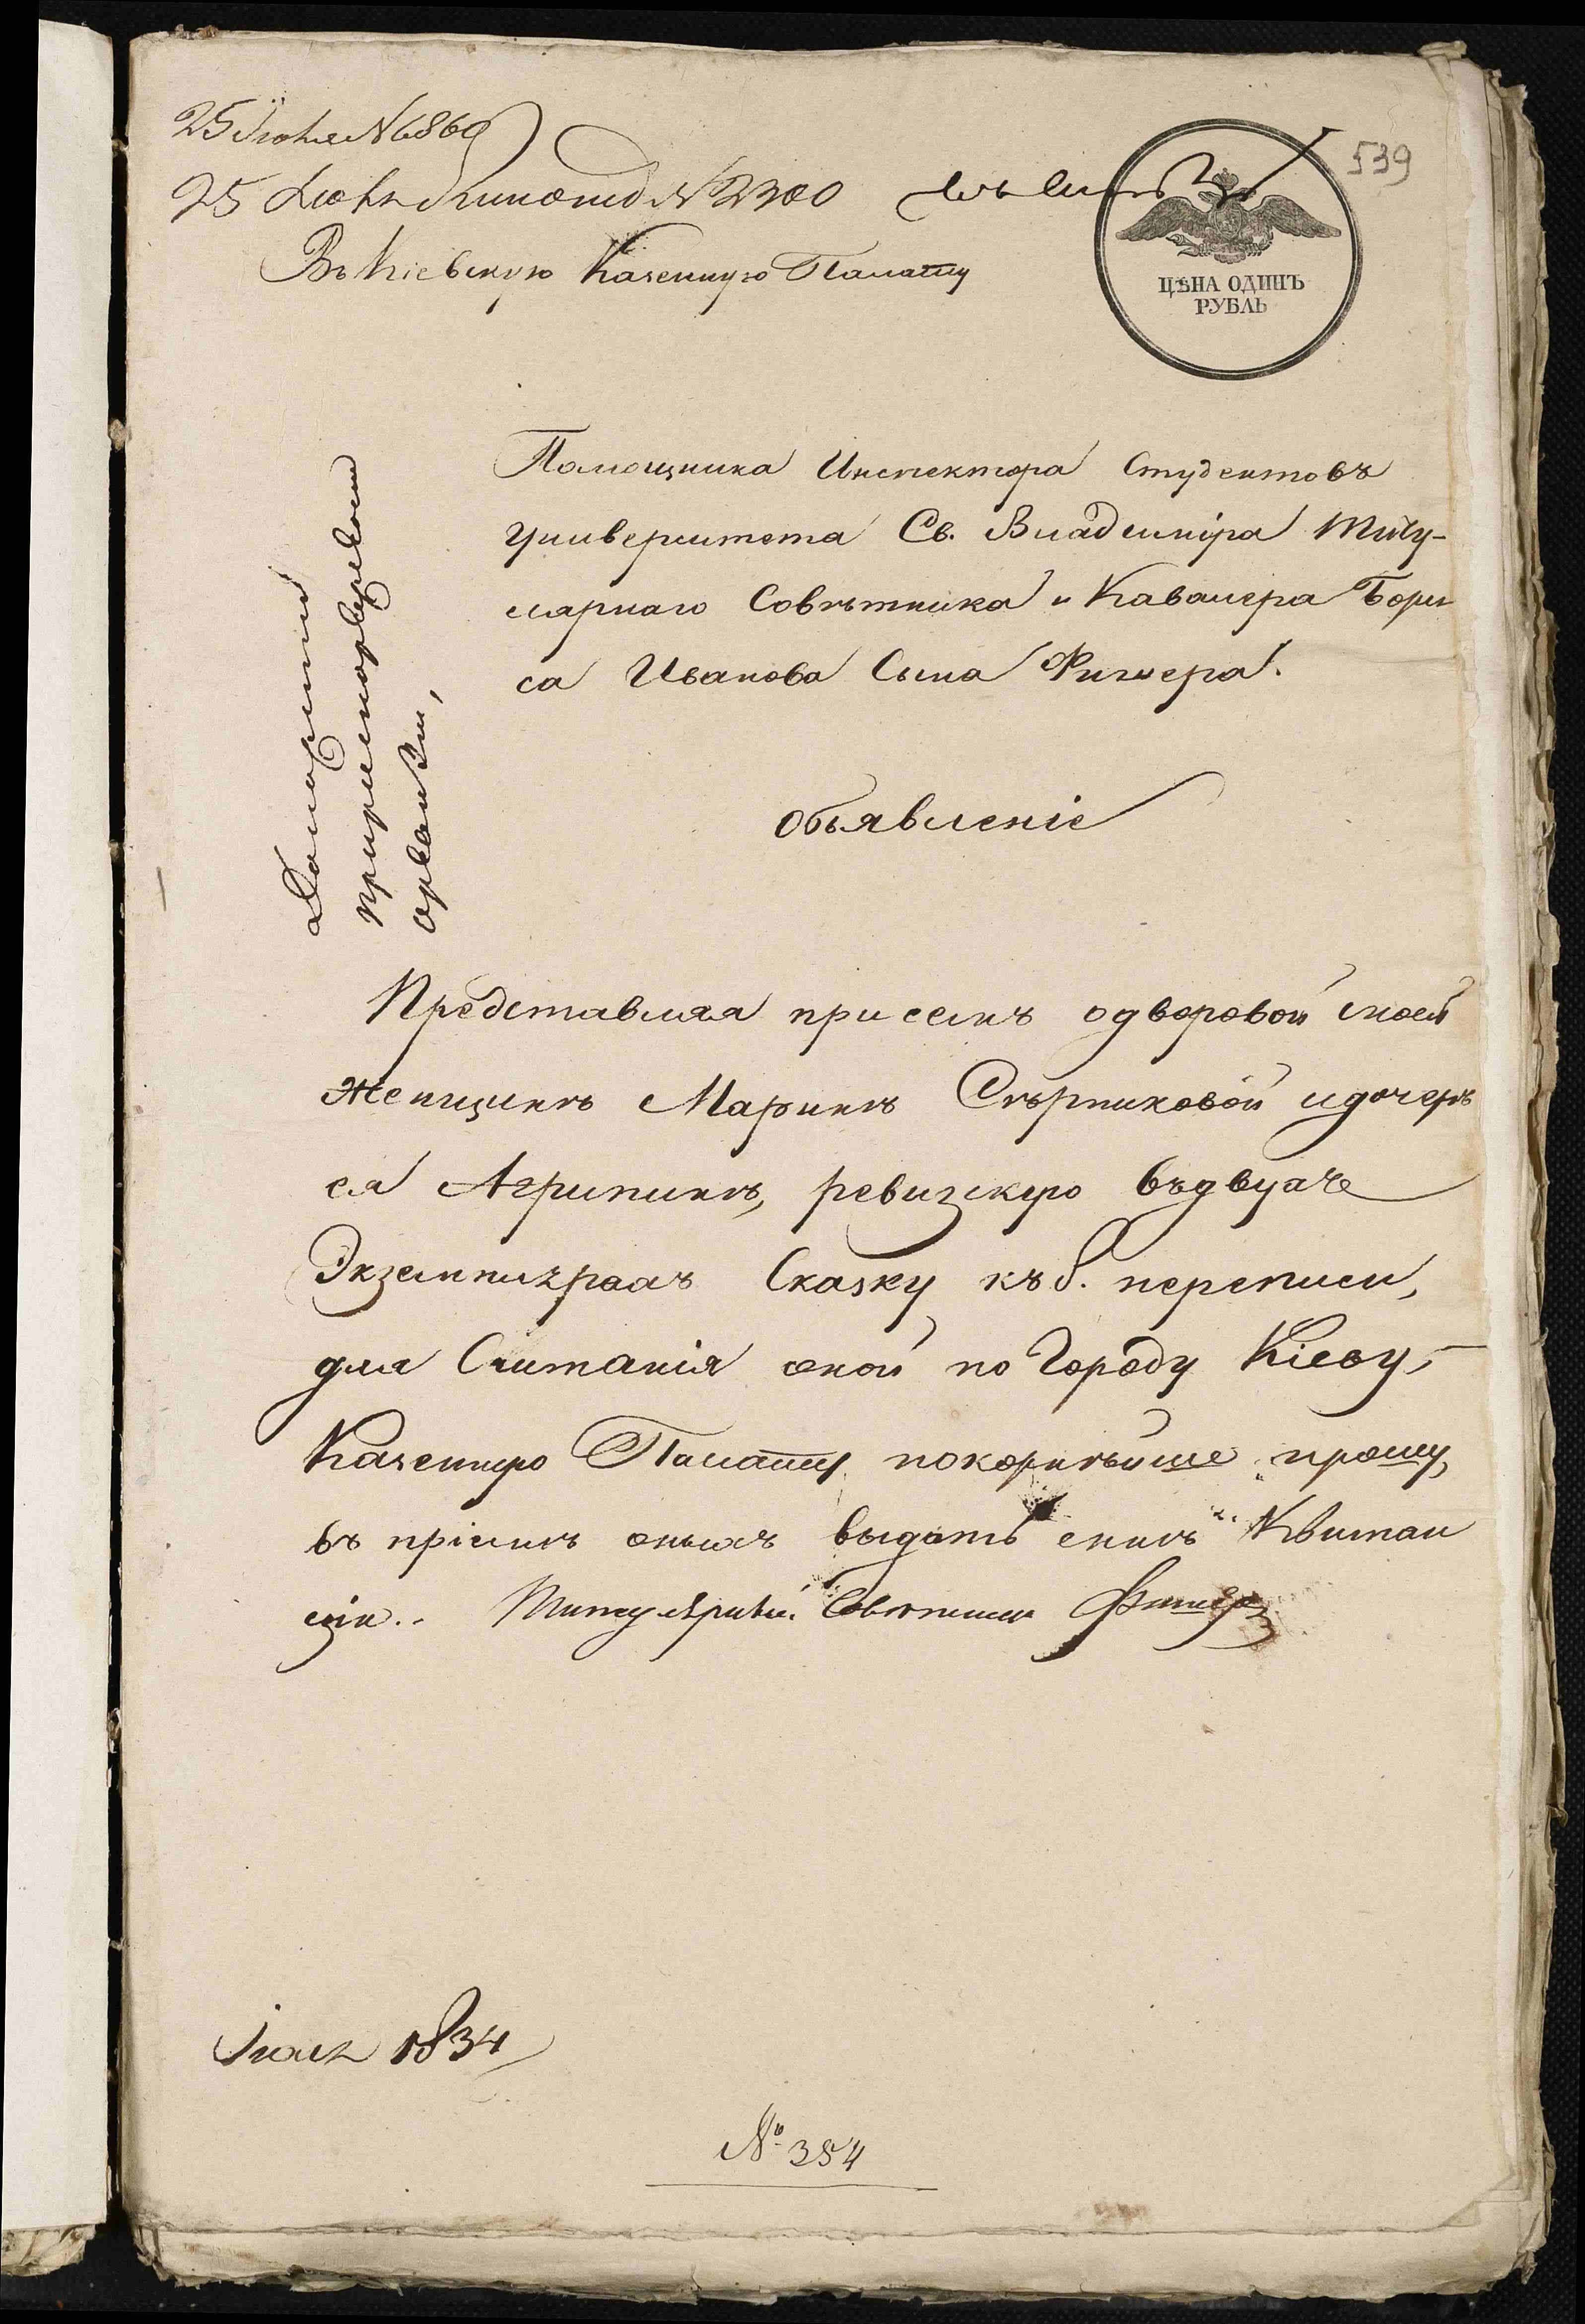 25 Июня № 6869
25 Июня № 2300
539
Въ Кіевскую Казенную Палату
ЦѢНА ОДИНЪ
РУБЛЬ
Помощника Инспектора Студентовъ
Университета Св. Владиміра Титу-
лярнаго Совѣтника и Кавалера Бори
са Иванова Сына Фишера.
Объявленіе
Представляя присемъ одворовой моей
женщинѣ Маринѣ Смѣрниковой идочерѣ
ея Агрипинѣ, ревизскую въдвухъ
Экземплярахъ Сказку къ 8. переписи,
для Считанія оной по Городу Кіеву,
Казенную Палату покорнѣйше прошу,
въ пріемѣ оныхъ выдать мнѣ Квитан
цію.. Титулярный Совѣтникъ Фишеръ
Іюня 1834
№ 354